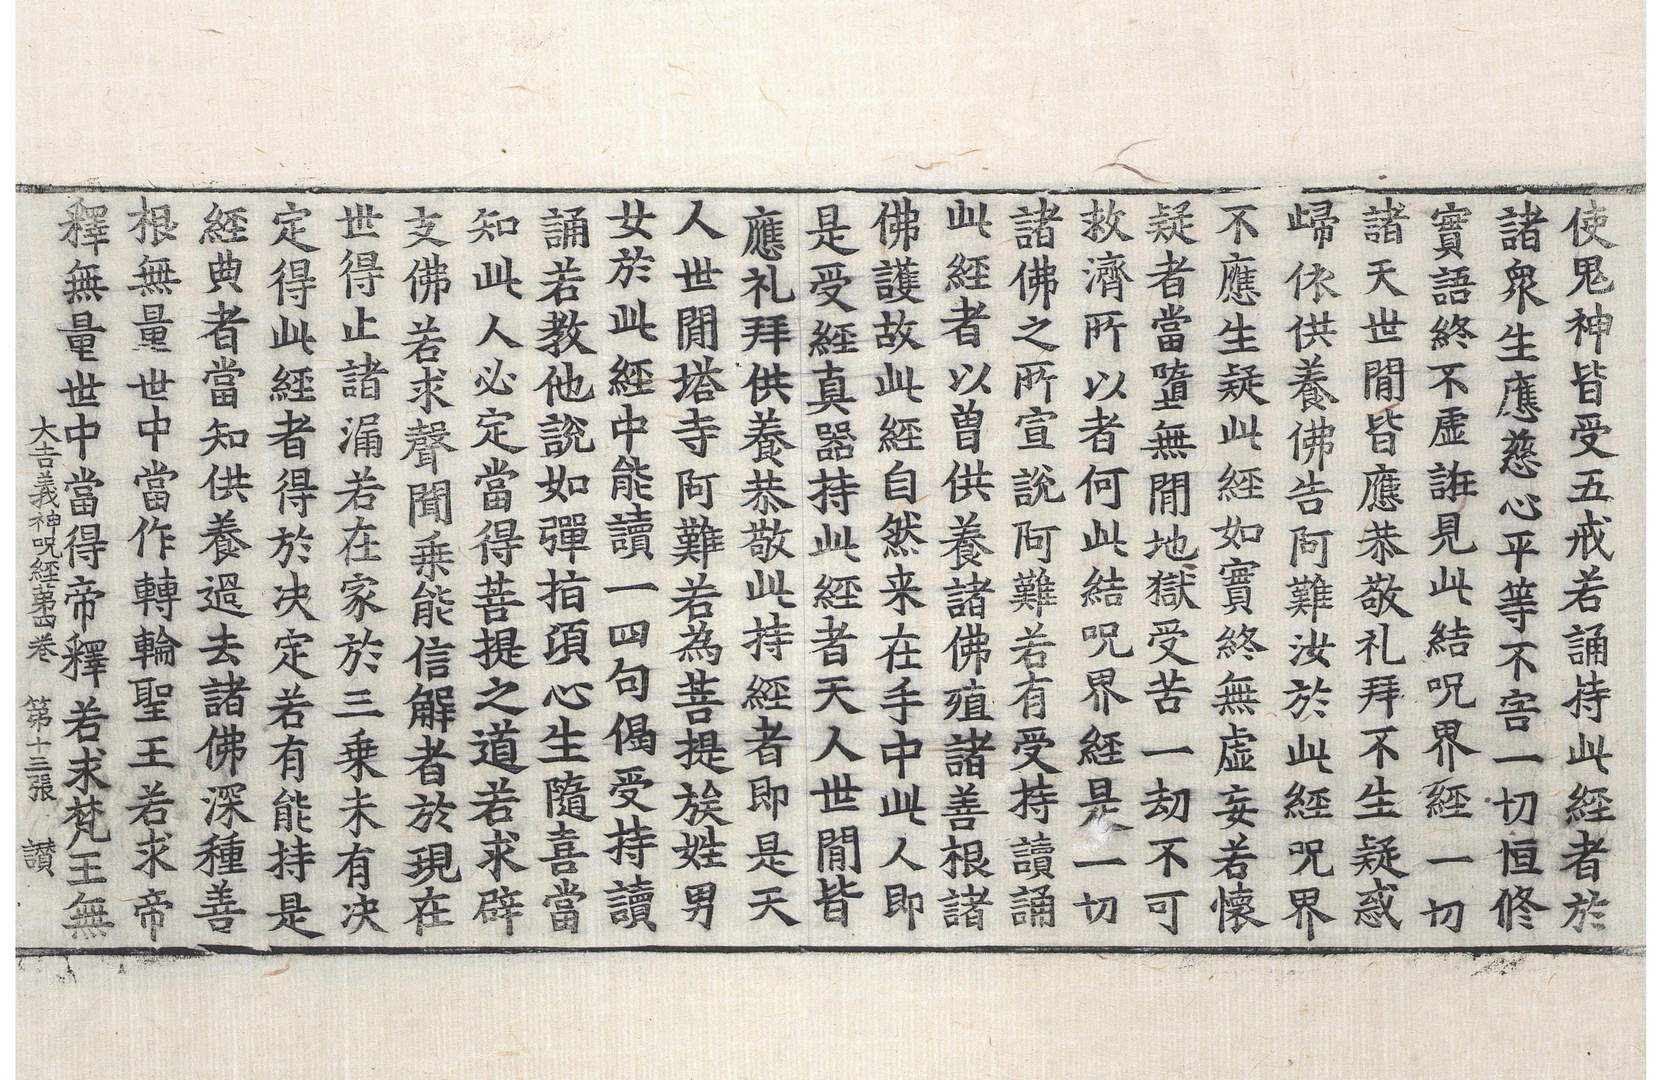 使鬼神皆受五戒若誦持此經者於
諸衆生應慈心平等不害一切恒修
實語終不虛誑見此結呪界經一切
諸天世閒皆應恭敬礼拜不生疑惑
歸依供養佛告阿難汝於此經呪界
不應生疑此經如實終無虛妄若懷
疑者當墮無閒地獄受苦一劫不可
救濟所以者何此結呪界經是一切
諸佛之所宣說阿難若有受持讀誦
此經者以曾供養諸佛殖諸善根諸
佛護故此經自然来在手中此人即
是受經真器持此經者天人世閒皆
應礼拜供養恭敬此持經者即是天
人世閒塔寺阿難若為菩提族姓男
女於此經中能讀一四句偈受持讀
誦若教他說如彈指頃心生隨喜當
知此人必定當得菩提之道若求辟
支佛若求聲聞乗能信解者於現在
世得止諸漏若在家於三乗未有决
定得此經者得於决定若有能持是
經典者當知供養過去諸佛深種善
根無量世中當作轉輪聖王若求帝
釋無量世中當得帝釋若求梵王無
大吉義神呪經第四卷　第十三張　讃